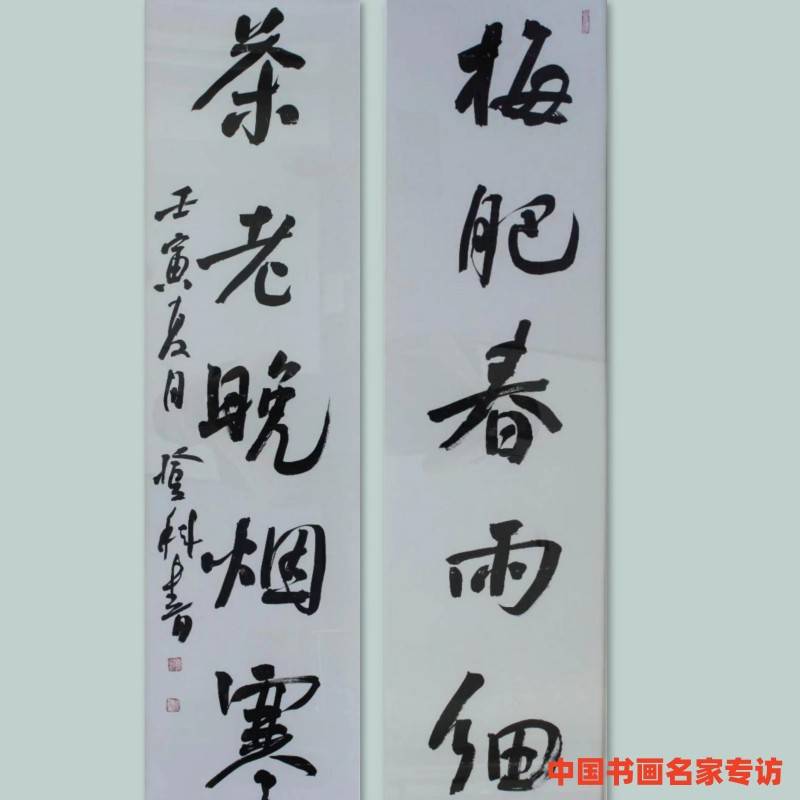 梅肥春雨细
茶老晚烟寒
壬寅夏月登科书
中国书画名家专访